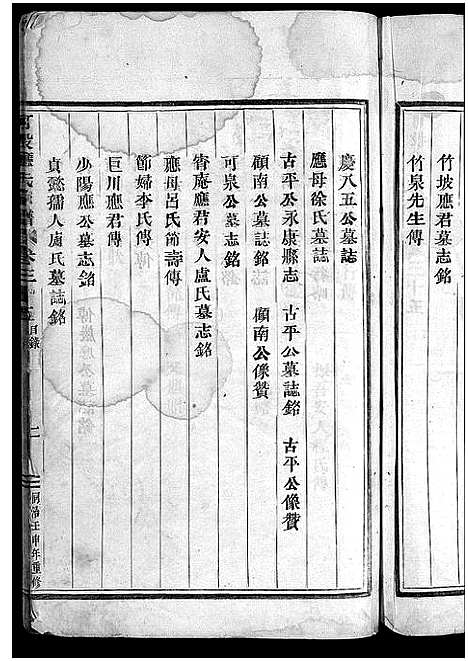 竹坡應君墓志銘
竹泉先生傳
慶八五公墓誌
應母徐氏墓誌
古平公永康縣志　古平公墓誌銘　古平公像贊
頤南公墓誌銘　頤南公像贊
可泉公墓志銘
脊庵應君安人盧氏墓志銘
應母呂氏節壽傳
節婦李氏傳
巨川應君傳
少陽應公墓志銘
貞懿孺人盧氏墓誌銘
應氏宗譜 卷三 目錄
二
同治壬申年重修